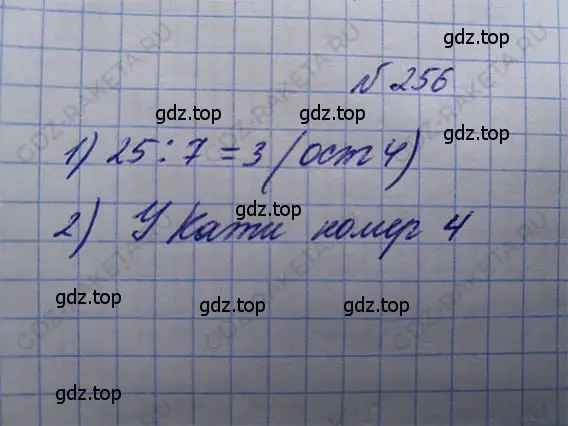 gdz.top
№ 256
gdz.top gdz.top
1) 25 : 7 = 3 (ост 4)
gdz.top
2) У Кати номер 4
gdz.top gdz.top gdz.top
gdz.top